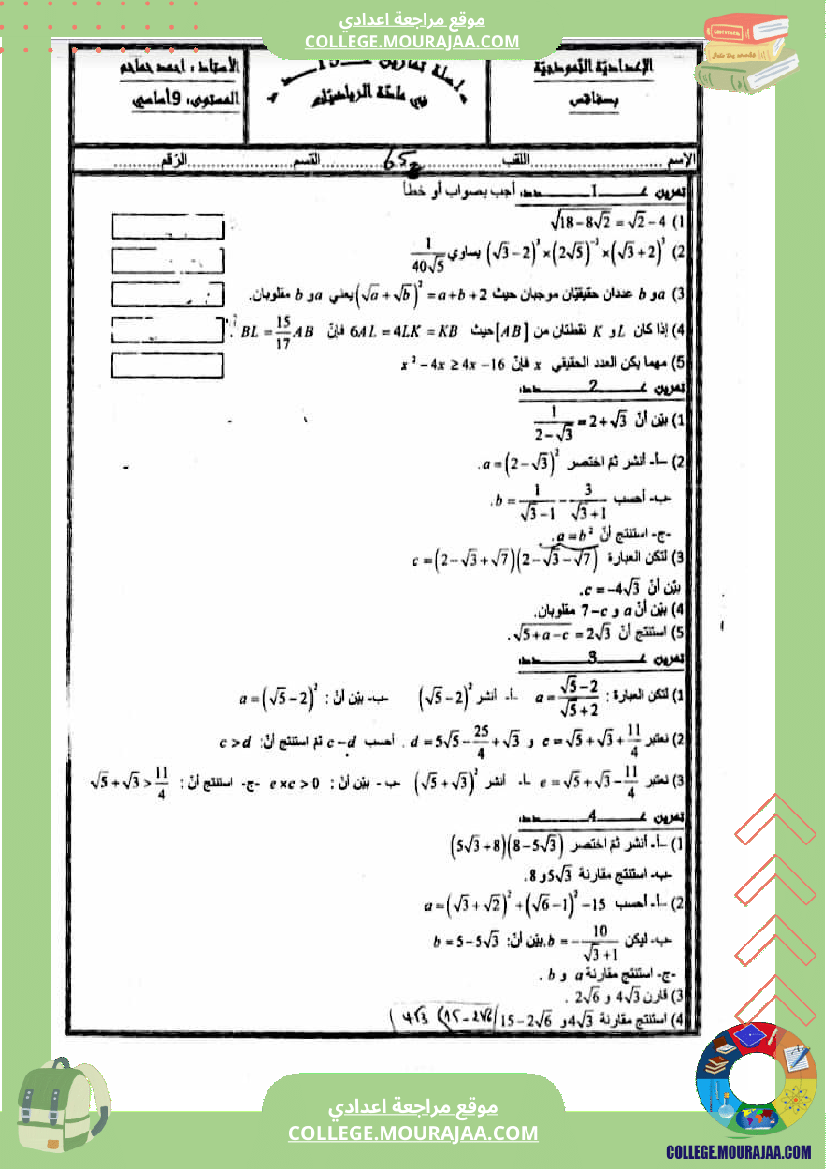 موقع مراجعة اعدادي
COLLEGE.MOURAJAA.COM
الإعدادية النموذجية
بصفاقس
سلسلة تمارين
في مادة الرياضيات
الأستاذ: احمد حماحم
المستوى: 9 أساسي
الإسم .......... اللقب .......... القسم .......... الرقم ..........
تمرين عـ 1 ـدد: أجب بصواب أو خطأ
1) √(18−8√2) = √2−4
2) (√3−2)³×(2√5)⁻³×(√3+2)³ يساوي 1/(40√5)
3) a و b عددان حقيقيان موجبان حيث (√a+√b)² = a+b+2 يعني a و b مقلوبان.
4) إذا كان L و K نقطتان من [AB] حيث 6AL = 4LK = KB فإنّ BL = 15/17 AB.
5) مهما يكن العدد الحقيقي x فإنّ x²−4x ≥ 4x−16
تمرين عـ 2 ـدد:
1) بيّن أنّ 1/(2−√3) = 2+√3
2) –أ- أنشر ثمّ اختصر a = (2−√3)².
-ب- أحسب b = 1/(√3−1) − 3/(√3+1).
-ج- استنتج أنّ a = b².
3) لتكن العبارة c = (2−√3+√7)(2−√3−√7)
بيّن أنّ c = −4√3.
4) بيّن أنّ a و 7−c مقلوبان.
5) استنتج أنّ √(5+a−c) = 2√3.
تمرين عـ 3 ـدد:
1) لتكن العبارة : a = (√5−2)/(√5+2) -أ- أنشر (√5−2)² -ب- بيّن أنّ : a = (√5−2)²
2) نعتبر c = √5+√3+11/4 و d = 5√5−25/4+√3 . أحسب c−d ثم استنتج أنّ: c>d
3) نعتبر e = √5+√3−11/4 -أ- أنشر (√5+√3)² -ب- بيّن أنّ : e×c>0 -ج- استنتج أنّ : √5+√3>11/4
تمرين عـ 4 ـدد:
1) –أ- أنشر ثمّ اختصر (5√3+8)(8−5√3)
-ب- استنتج مقارنة 5√3 و 8.
2) –أ- أحسب a = (√3+√2)²+(√6−1)²−15
-ب- ليكن b = −10/(√3+1). بيّن أنّ: b = 5−5√3
-ج- استنتج مقارنة a و b .
3) قارن 4√3 و 2√6 .
4) استنتج مقارنة 4√3 و 15−2√6
موقع مراجعة اعدادي
COLLEGE.MOURAJAA.COM
COLLEGE.MOURAJAA.COM